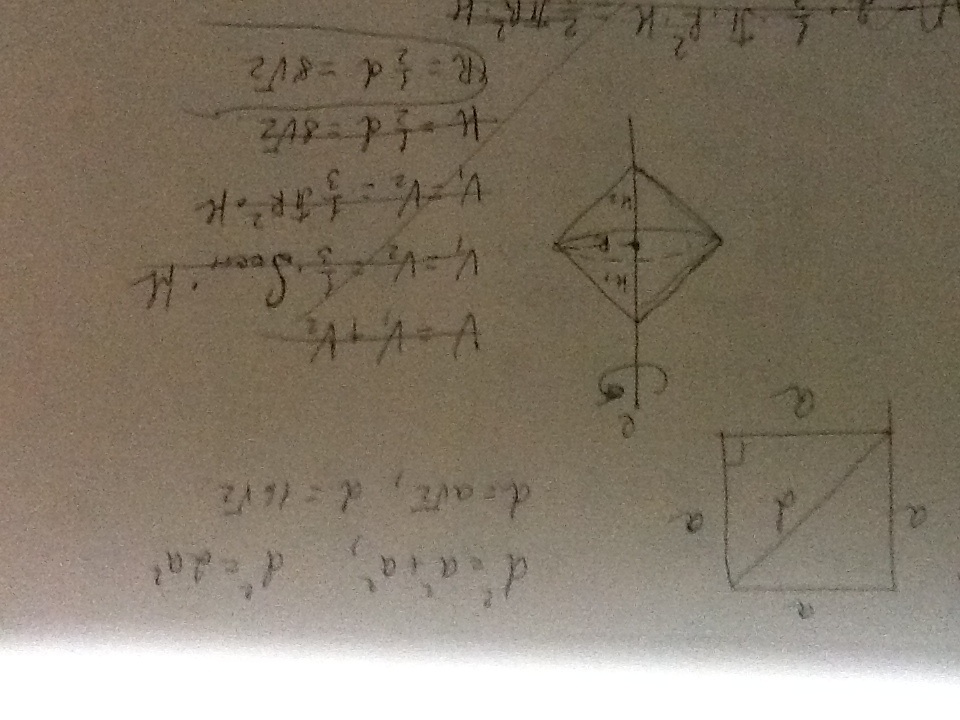 a
a d a
a
d² = a² + a², d² = 2a²
d = a√2, d = 16√2
l
V = V₁ + V₂
V₁ = V₂ = 1/3 · Sосн · H
V₁ = V₂ = 1/3 πR² · H
H = 1/2 d = 8√2
R = 1/2 d = 8√2
H₁
R
H₂
π · R² · H = 2/3 πR² · H